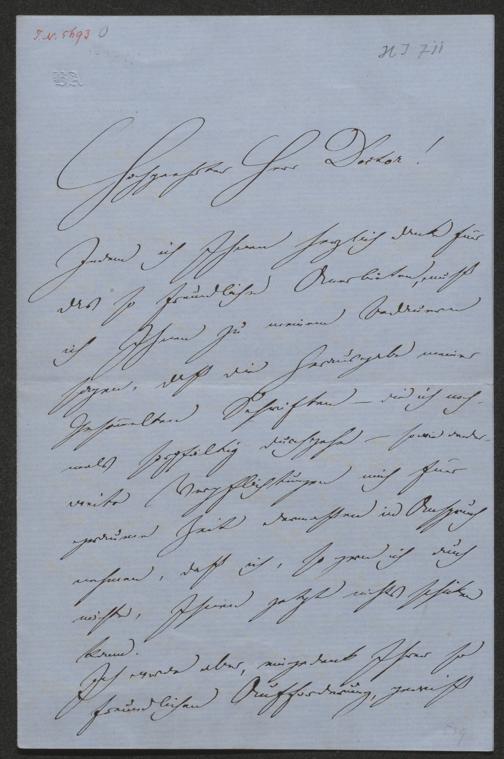 I.N. 5693
HI 711
BA
Hochgeehrter Herr Doctor!
Indem ich Ihnen herzlich dank für
das so freundliche Anerbieten, muß
ich Ihnen zu meinem Bedauern
sagen, daß die Herausgabe meiner
gesammelten Schriften – die ich noch-
mals sorgfältig durchsehe – sowie ander-
weite Verpflichtungen mich für
geraume Zeit dermaßen in Anspruch
nehmen, daß ich, so gern ich auch
möchte, Ihnen jetzt nichts schicken
kann.
Ich werde aber, eingedenk Ihrer so
freundlichen Aufforderung, gewiß